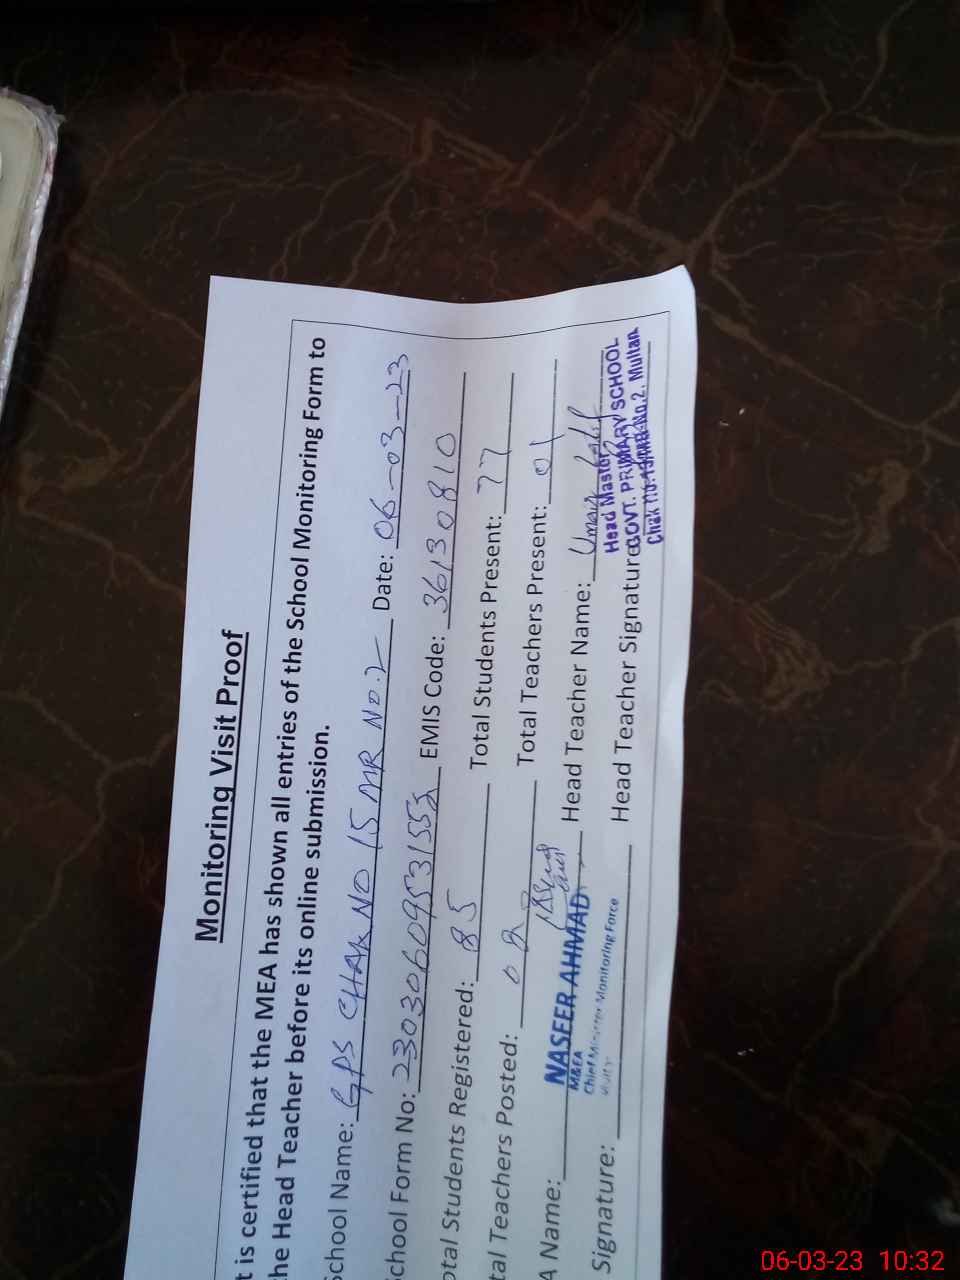 Monitoring Visit Proof
t is certified that the MEA has shown all entries of the School Monitoring Form to
he Head Teacher before its online submission.
School Name: GPS CHAK NO 15 MR NO.2 Date: 06-03-23
School Form No: EMIS Code: 36130810
otal Students Registered: 85 Total Students Present: 77
tal Teachers Posted: 02 Total Teachers Present: 01
A Name: NASEER AHMAD Head Teacher Name: Umair
M&EA
Chief Minister Monitoring Force
Head Master
Signature: Head Teacher Signature
GOVT. PRIMARY SCHOOL
Chak No. No.2. Multan
06-03-23 10:32